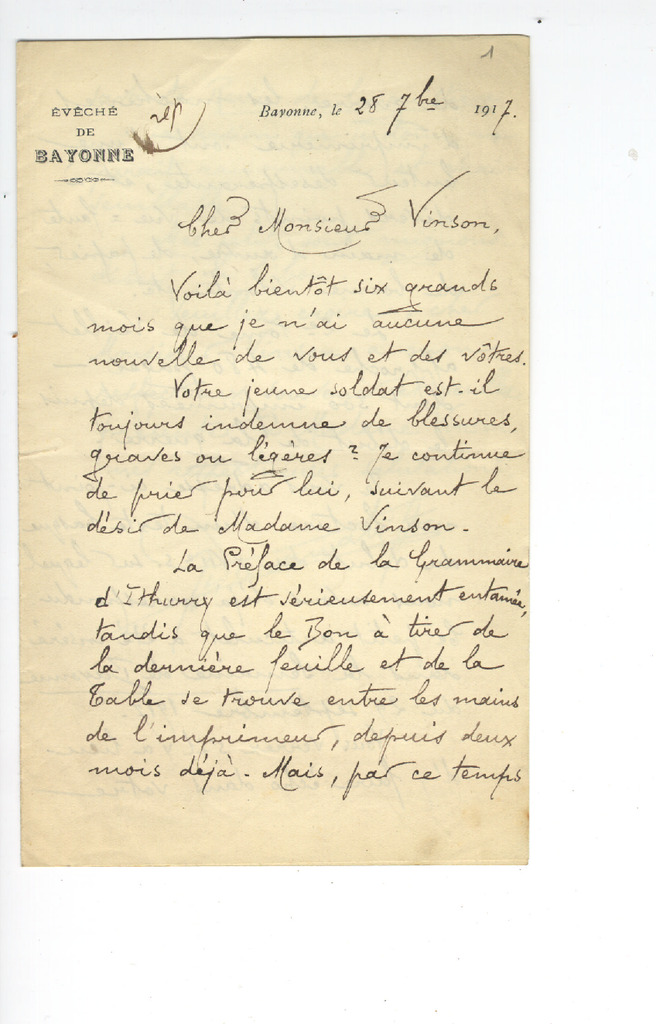 1
ÉVÊCHÉ
DE
BAYONNE
rép
Bayonne, le 28 7bre 1917.
Cher Monsieur Vinson,
Voilà bientôt six grands
mois que je n'ai aucune
nouvelle de vous et des vôtres.
Votre jeune soldat est-il
toujours indemne de blessures,
graves ou légères ? Je continue
de prier pour lui, suivant le
désir de Madame Vinson.
La Préface de la Grammaire
d'Ithurry est sérieusement entamée,
tandis que le Bon à tirer de
la dernière feuille et de la
Table se trouve entre les mains
de l'imprimeur, depuis deux
mois déjà. Mais, par ce temps